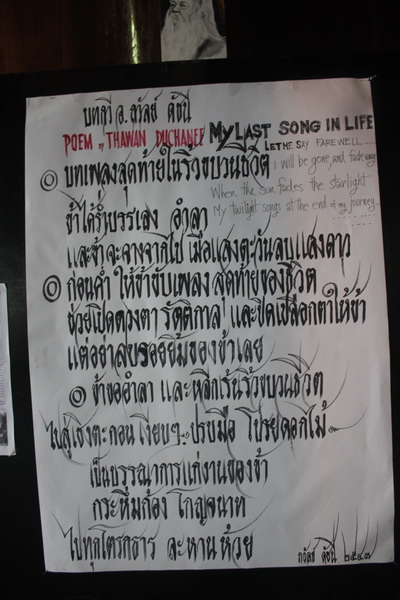 บทกวี อ.ถวัลย์ ดัชนี
POEM by THAWAN DUCHANEE
MY LAST SONG IN LIFE
LET ME SAY FAREWELL......
I will be gone and fade away
When the sun fades the starlight
My twilight songs at the end of my journey...
บทเพลงสุดท้ายในริ้วขบวนชีวิต
ข้าได้รับบรรเลง อำลา
และข้าจะจางจากไป เมื่อแสงตะวันลบแสงดาว
ก่อนค่ำ ให้ข้าขับเพลง สุดท้ายของชีวิต
ช่วยเปิดดวงตา รัตติกาล และปิดเปลือกตาให้ข้า
แต่อย่าลบรอยยิ้มของข้าเลย
ข้าขออำลา และหลีกเร้นริ้วขบวนชีวิต
ไปสู่เชิงตะกอน เงียบๆ ปรบมือ โปรยดอกไม้
เป็นบรรณาการแก่งานของข้า
กระหึ่มก้อง โกญจนาท
ไปทุกโตรกธาร ละหานห้วย
ถวัลย์ ดัชนี ๒๕๔๗